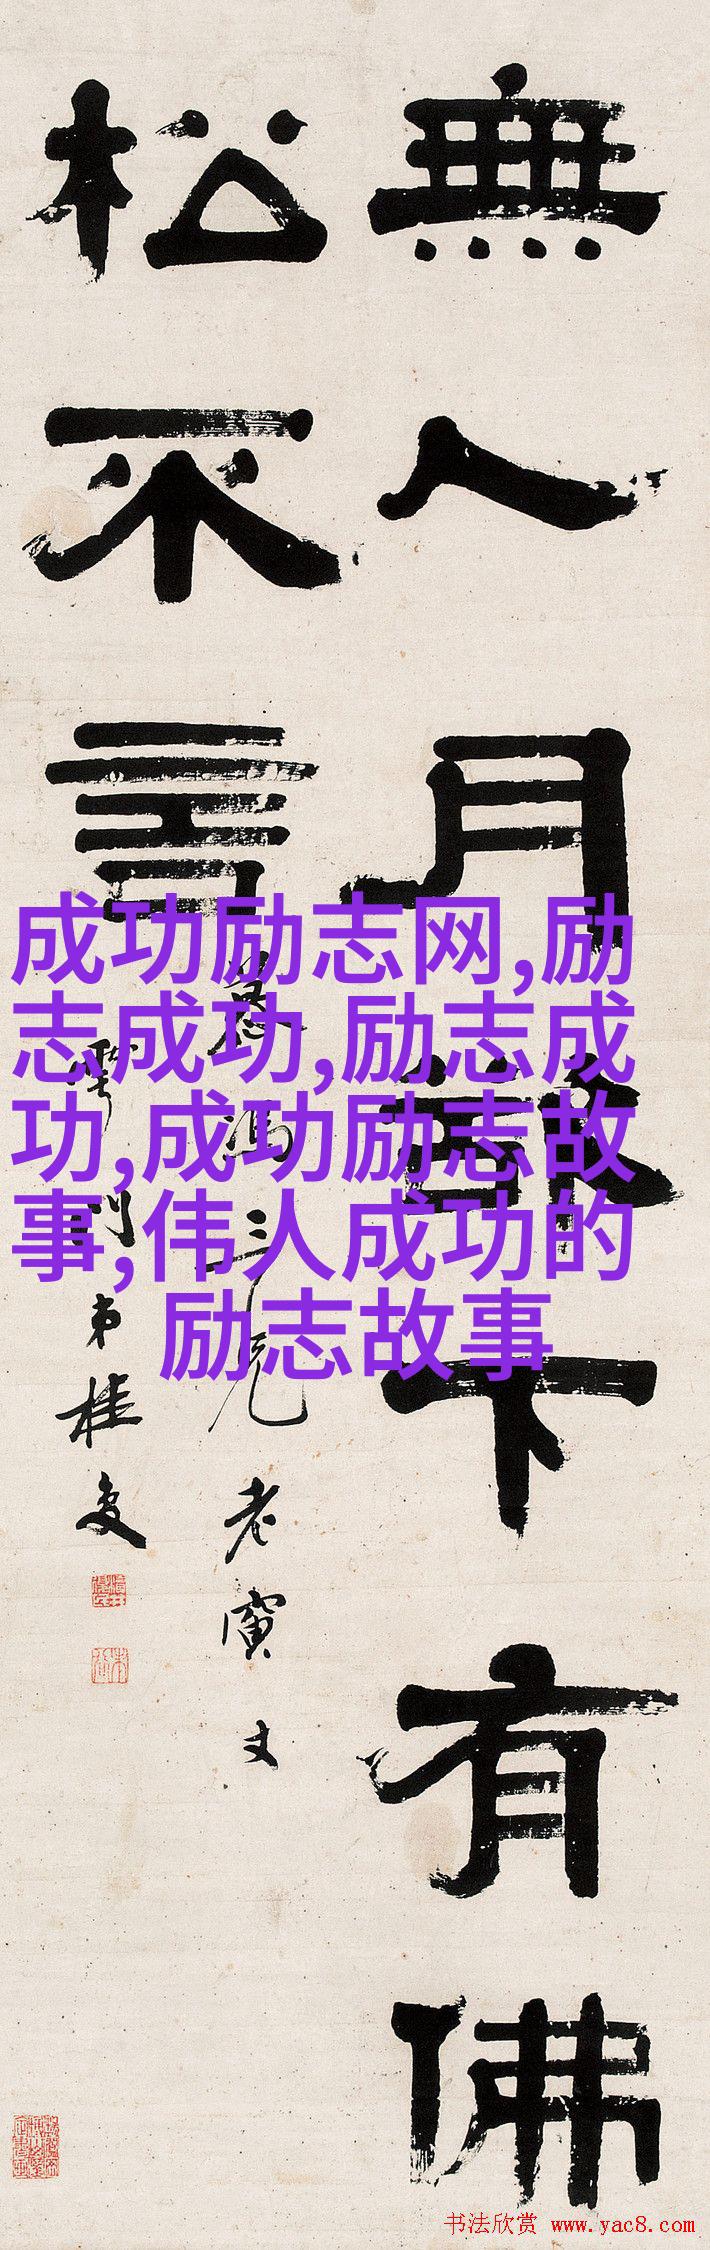 無人月下有佛
松不言
三兄老寅丈
弟桂
成功励志网,励
志成功,励志成
功,成功励志故
事,伟人成功的
励志故事
书法欣赏 www.yac8.com